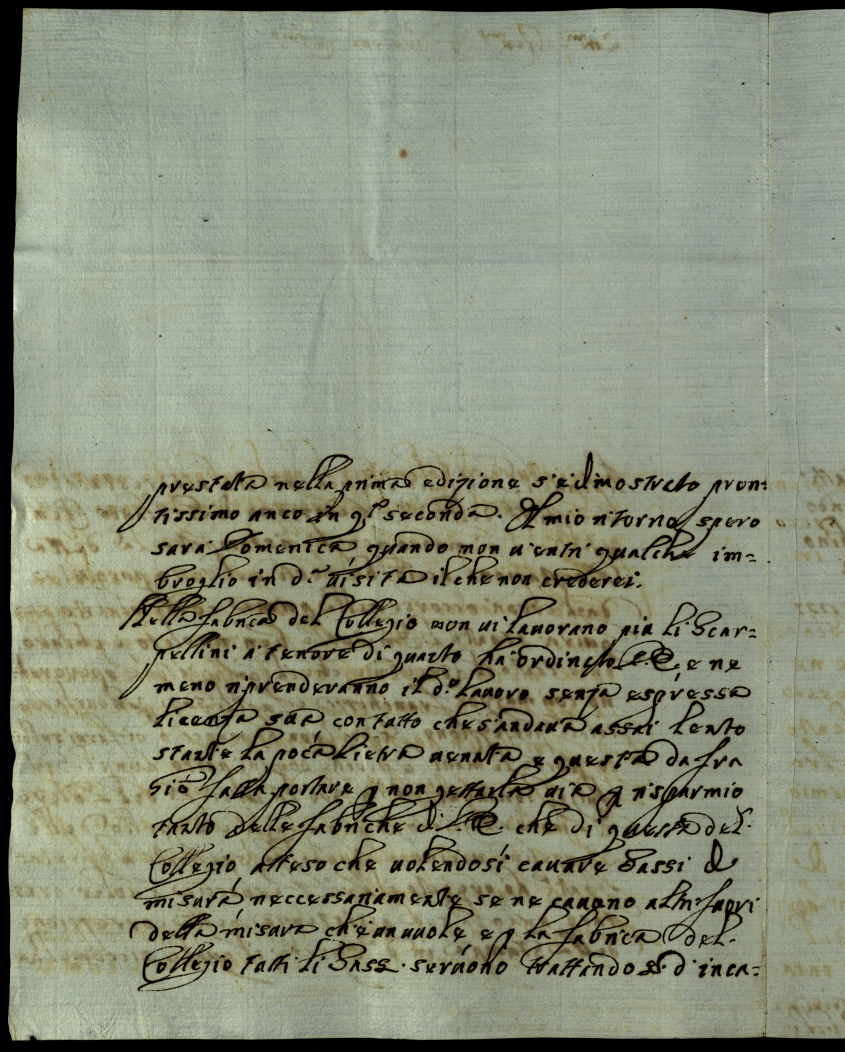 prestata nella prima edizione s'è dimostrato pron=
tissimo anco in q.ta seconda. Al mio ritorno, spero
sarà Domenica quando non v'entri qualche im=
broglio in d.a visita il che non crederei.
Nella fabrica del Collegio non vi lavorano più li Scar=
pellini a tenore di quanto ha ordinato e ne
meno riprenderanno il d.o lavoro senza espressa
licenza sua con tutto che s'andava assai lento
stante la poca Pietra venuta e questa da fra
Gio: fatta portare p non gettarla via p risparmio
tanto delle fabriche di che di questa del
Collegio atteso che volendosi cavare Sassi di
misura neccessariamente se ne cavano altri fuori
della misura che un vuole e p la fabrica del
Collegio tutti li Sassi servono trattandosi d'inca=